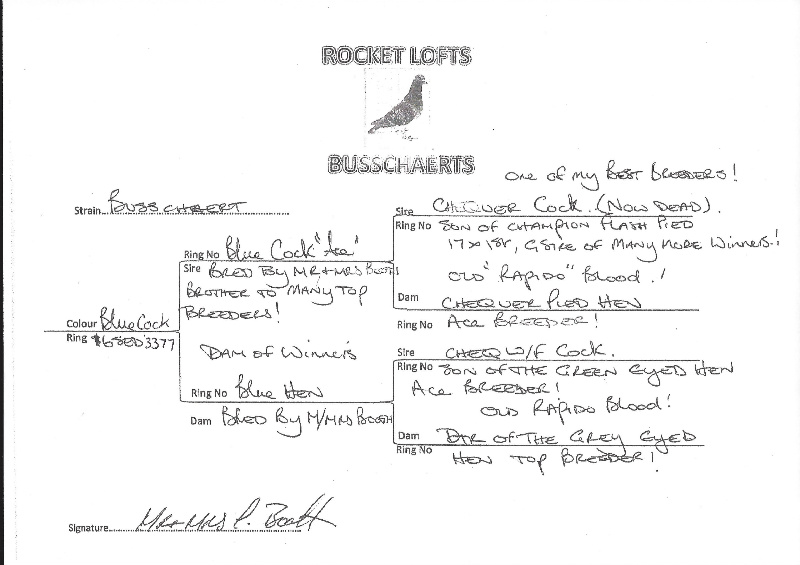 ROCKET LOFTS
BUSSCHAERTS
One of my Best Breeders!
Strain Busschaert
Sire Chequer Cock. (Now Dead).
Ring No Son of Champion Flash Pied
17 x 1st, G.Sire of Many More Winners!
Old "Rapido" Blood.!
Dam Chequer Pied Hen
Ring No Ace Breeder!
Ring No Blue Cock "Ace"
Sire Bred By Mr + Mrs Booth
Brother to Many Top
Breeders!
Colour Blue Cock
Ring 3377
Dam of Winners
Ring No Blue Hen
Dam Bred By M/Mrs Booth
Sire Cheq W/F Cock.
Ring No Son of the Green Eyed Hen
Ace Breeder!
Old Rapido Blood!
Dam Dtr of the Grey Eyed
Ring No Hen Top Breeder!
Signature Mr + Mrs P. Booth